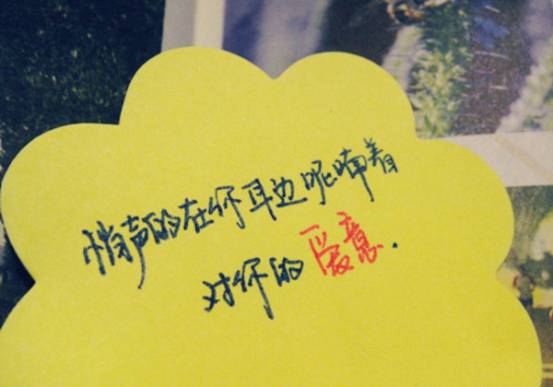 悄声的在你耳边呢喃着
对你的爱意.